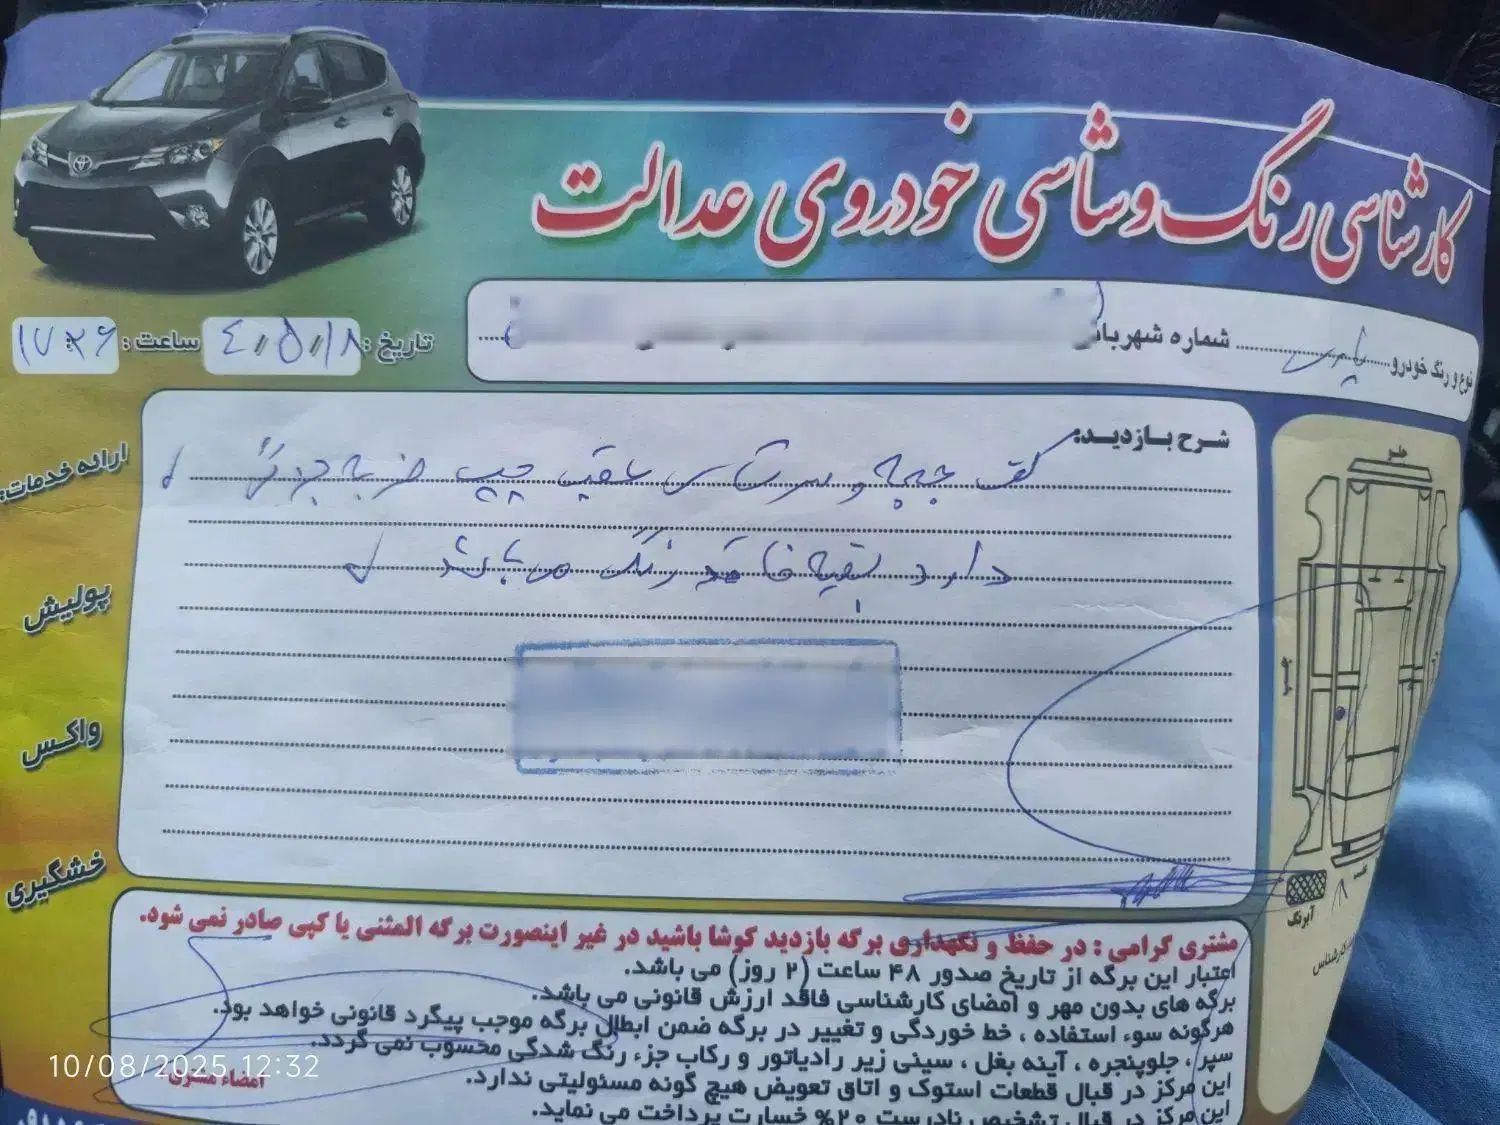 کارشناسی رنگ و شاسی خودروی عدالت
نوع و رنگ خودرو پارس
شماره شهربانی
تاریخ: ۴۰۵/۱۸
ساعت: ۱۷:۲۶
شرح بازدید:
کف جعبه و سرشاسی عقب چپ ضربه جزئی
دارد بقیه فاقد رنگ می باشد
ارائه خدمات:
پولیش
واکس
خشگیری
جلو
آبرنگ
مشتری گرامی : در حفظ و نگهداری برگه بازدید کوشا باشید در غیر اینصورت برگه المثنی یا کپی صادر نمی شود.
اعتبار این برگه از تاریخ صدور ۴۸ ساعت (۲ روز) می باشد.
برگه های بدون مهر و امضای کارشناسی فاقد ارزش قانونی می باشد.
هرگونه سوء استفاده ، خط خوردگی و تغییر در برگه ضمن ابطال برگه موجب پیگرد قانونی خواهد بود.
سپر ، جلوپنجره ، آینه بغل ، سینی زیر رادیاتور و رکاب جزء رنگ شدگی محسوب نمی گردد.
این مرکز در قبال قطعات استوک و اتاق تعویض هیچ گونه مسئولیتی ندارد.
این مرکز در قبال تشخیص نادرست ۲۰% خسارت پرداخت می نماید.
امضاء مشتری
10/08/2025 12:32